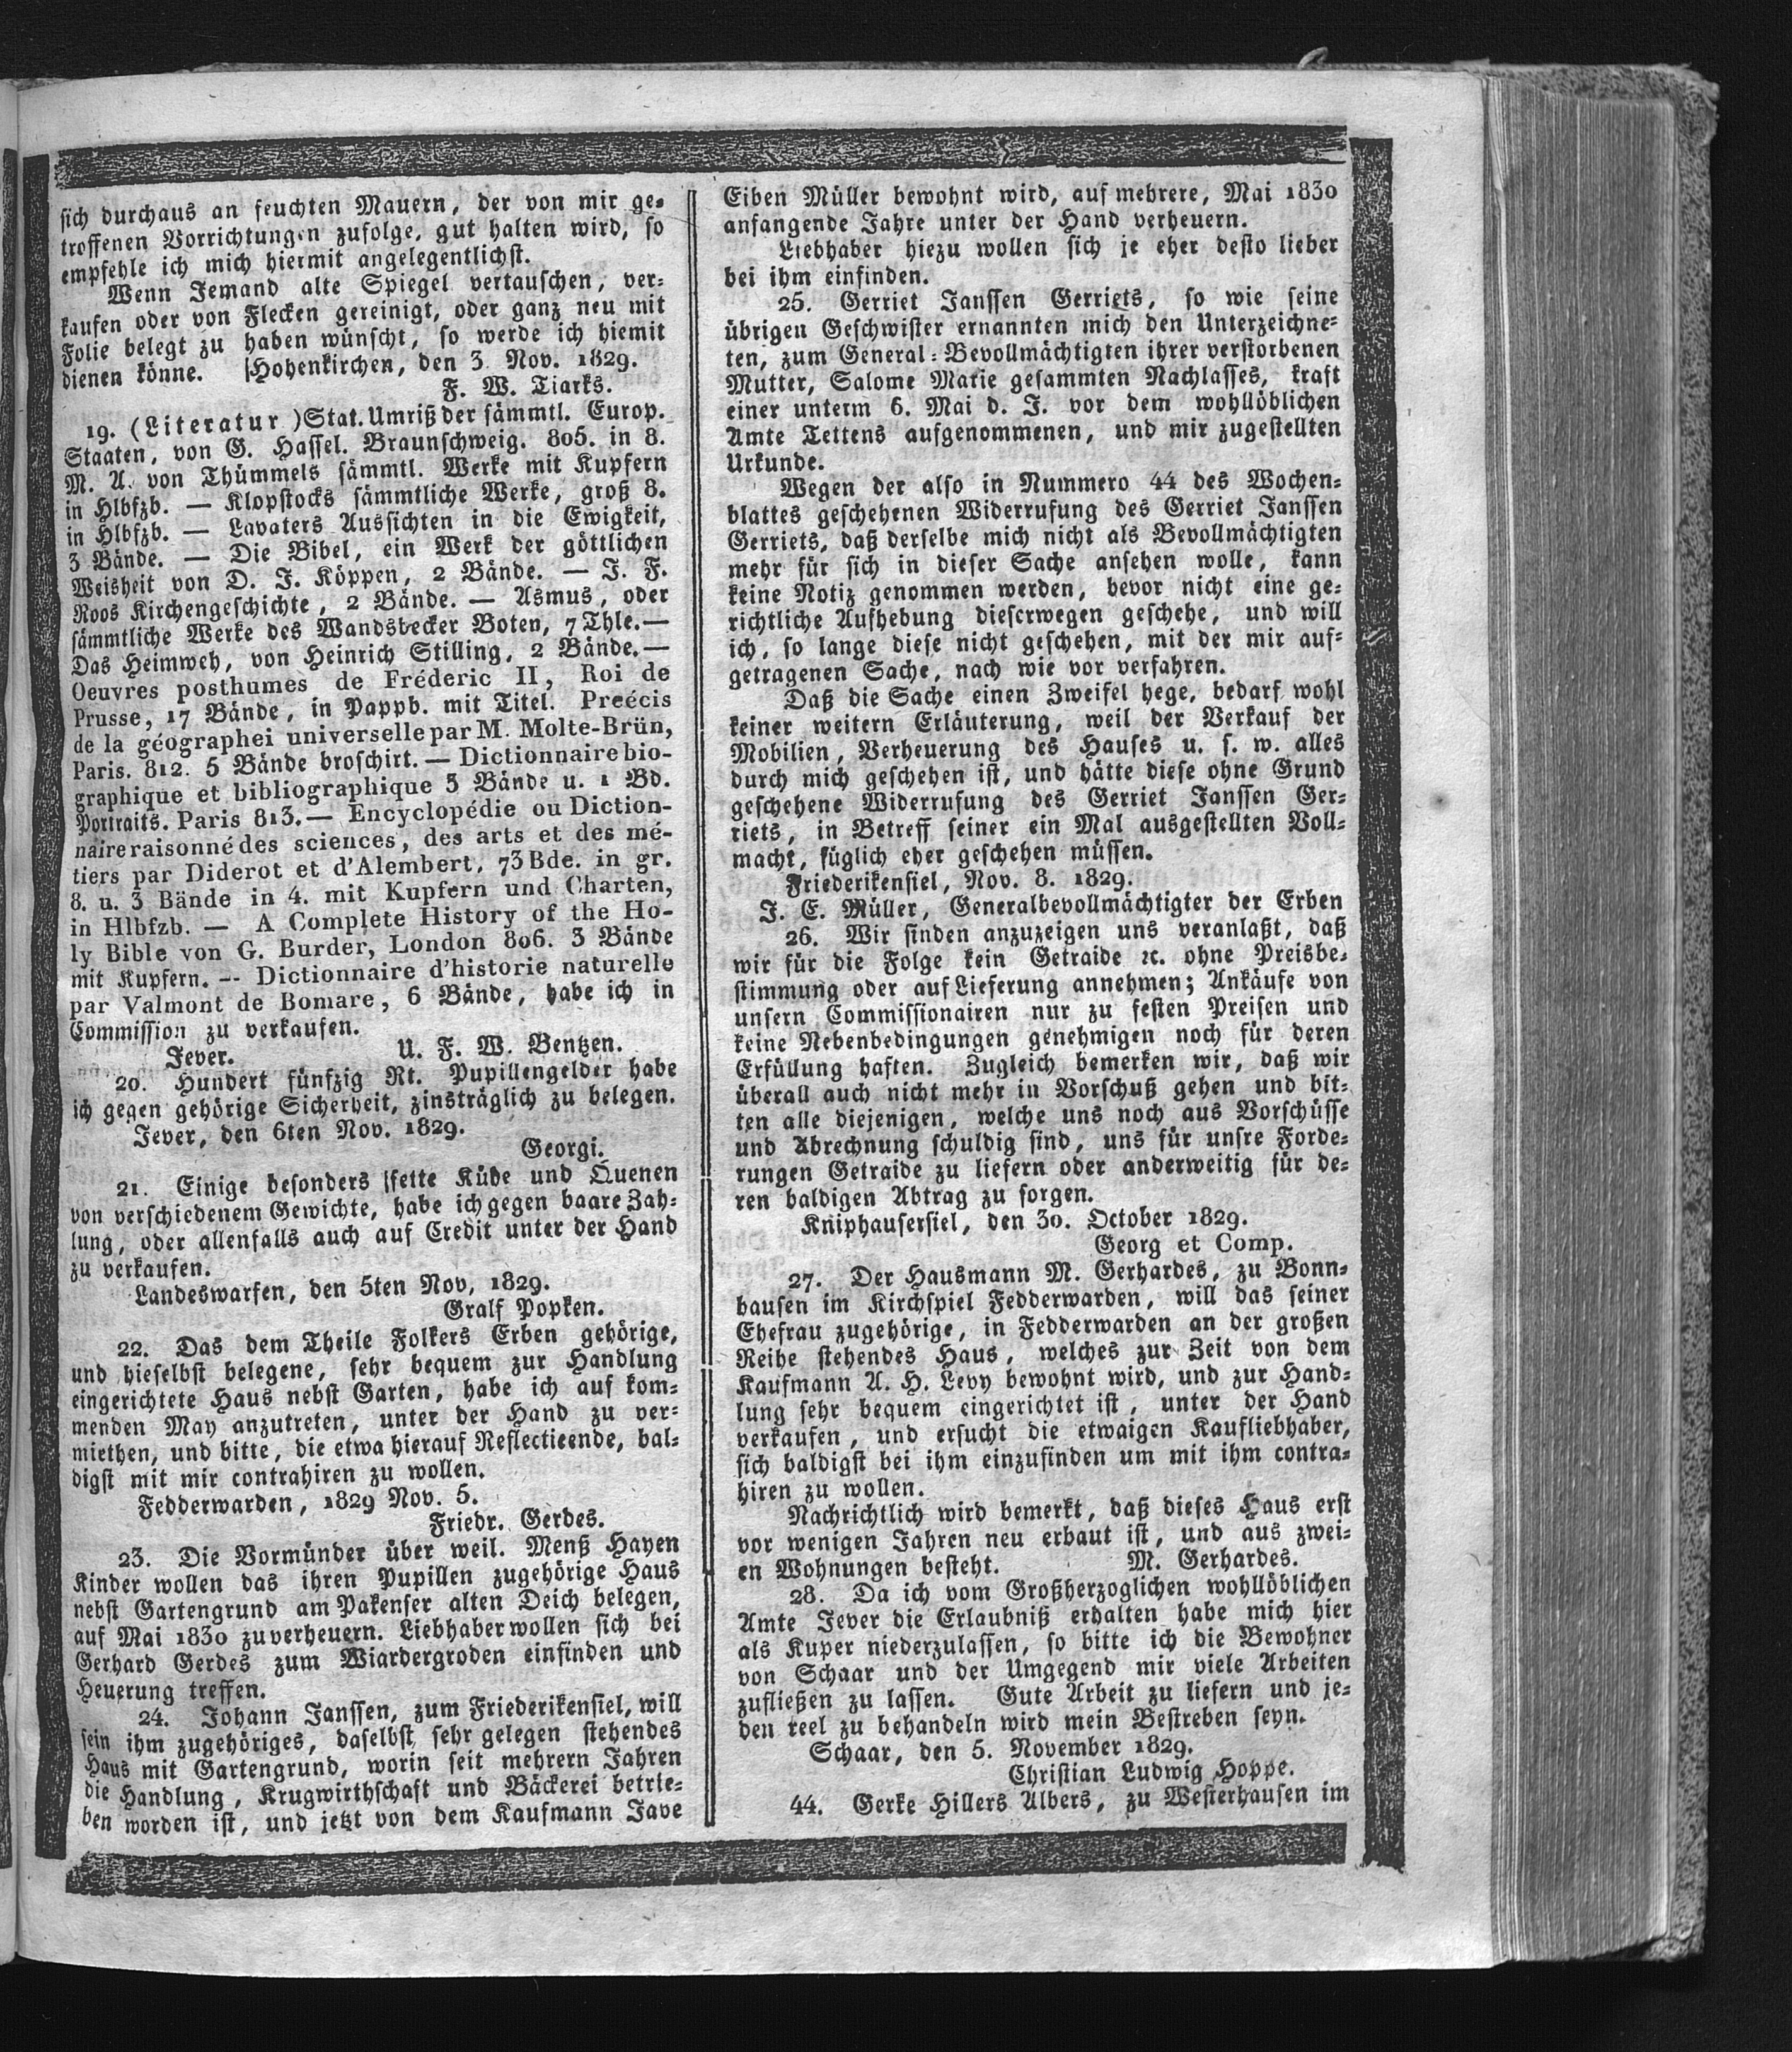 sich durchaus an feuchten Mauern, der von mir ge-
troffenen Vorrichtungen zufolge, gut halten wird, so
empfehle ich mich hiermit angelegentlichst.
Wenn Jemand alte Spiegel vertauschen, ver-
kaufen oder von Flecken gereinigt, oder ganz neu mit
Folie belegt zu haben wünscht, so werde ich hiemit
dienen könne. Hohenkirchen, den 3. Nov. 1829.
F. W. Tiarks.
19. (Literatur) Stat. Umriß der sämmtl. Europ.
Staaten, von G. Hassel. Braunschweig. 805. in 8.
M. A. von Thümmels sämmtl. Werke mit Kupfern
in Hlbfzb. — Klopstocks sämmtliche Werke, groß 8.
in Hlbfzb. — Lavaters Aussichten in die Ewigkeit,
3 Bände. — Die Bibel, ein Werk der göttlichen
Weisheit von D. J. Köppen, 2 Bände. — J. F.
Roos Kirchengeschichte, 2 Bände. — Asmus, oder
sämmtliche Werke des Wandsbecker Boten, 7 Thle.—
Das Heimweh, von Heinrich Stilling, 2 Bände.—
Oeuvres posthumes de Fréderic II, Roi de
Prusse, 17 Bände, in Pappb. mit Titel. Preécis
de la géographei universelle par M. Molte-Brün,
Paris. 812. 5 Bände broschirt. — Dictionnaire bio-
graphique et bibliographique 3 Bände u. 1 Bd.
Portraits. Paris 813.— Encyclopédie ou Diction-
naire raisonné des sciences, des arts et des mé-
tiers par Diderot et d'Alembert, 73 Bde. in gr.
8. u. 3 Bände in 4. mit Kupfern und Charten,
in Hlbfzb. — A Complete History of the Ho-
ly Bible von G. Burder, London 806. 3 Bände
mit Kupfern. -- Dictionnaire d'historie naturelle
par Valmont de Bomare, 6 Bände, habe ich in
Commission zu verkaufen.
Jever. U. F. W. Bentzen.
20. Hundert fünfzig Rt. Pupillengelder habe
ich gegen gehörige Sicherheit, zinsträglich zu belegen.
Jever, den 6ten Nov. 1829.
Georgi.
21. Einige besonders fette Kühe und Quenen
von verschiedenem Gewichte, habe ich gegen baare Zah-
lung, oder allenfalls auch auf Credit unter der Hand
zu verkaufen.
Landeswarfen, den 5ten Nov, 1829.
Gralf Popken.
22. Das dem Theile Folkers Erben gehörige,
und hieselbst belegene, sehr bequem zur Handlung
eingerichtete Haus nebst Garten, habe ich auf kom-
menden May anzutreten, unter der Hand zu ver-
miethen, und bitte, die etwa hierauf Reflectieende, bal-
digst mit mir contrahiren zu wollen.
Fedderwarden, 1829 Nov. 5.
Friedr. Gerdes.
23. Die Vormünder über weil. Menß Hayen
Kinder wollen das ihren Pupillen zugehörige Haus
nebst Gartengrund am Pakenser alten Deich belegen,
auf Mai 1830 zu verheuern. Liebhaber wollen sich bei
Gerhard Gerdes zum Wiardergroden einfinden und
Heuerung treffen.
24. Johann Janssen, zum Friederikensiel, will
sein ihm zugehöriges, daselbst sehr gelegen stehendes
Haus mit Gartengrund, worin seit mehrern Jahren
die Handlung, Krugwirthschaft und Bäckerei betrie-
ben worden ist, und jetzt von dem Kaufmann Jave
Eiben Müller bewohnt wird, auf mehrere, Mai 1830
anfangende Jahre unter der Hand verheuern.
Liebhaber hiezu wollen sich je eher desto lieber
bei ihm einfinden.
25. Gerriet Janssen Gerriets, so wie seine
übrigen Geschwister ernannten mich den Unterzeichne-
ten, zum General-Bevollmächtigten ihrer verstorbenen
Mutter, Salome Marie gesammten Nachlasses, kraft
einer unterm 6. Mai d. J. vor dem wohllöblichen
Amte Tettens aufgenommenen, und mir zugestellten
Urkunde.
Wegen der also in Nummero 44 des Wochen-
blattes geschehenen Widerrufung des Gerriet Janssen
Gerriets, daß derselbe mich nicht als Bevollmächtigten
mehr für sich in dieser Sache ansehen wolle, kann
keine Notiz genommen werden, bevor nicht eine ge-
richtliche Aufhebung dieserwegen geschehe, und will
ich, so lange diese nicht geschehen, mit der mir auf-
getragenen Sache, nach wie vor verfahren.
Daß die Sache einen Zweifel hege, bedarf wohl
keiner weitern Erläuterung, weil der Verkauf der
Mobilien, Verheuerung des Hauses u. s. w. alles
durch mich geschehen ist, und hätte diese ohne Grund
geschehene Widerrufung des Gerriet Janssen Ger-
riets, in Betreff seiner ein Mal ausgestellten Voll-
macht, füglich eher geschehen müssen.
Friederikensiel, Nov. 8. 1829.
J. E. Müller, Generalbevollmächtigter der Erben
26. Wir finden anzuzeigen uns veranlaßt, daß
wir für die Folge kein Getraide ꝛc. ohne Preisbe-
stimmung oder auf Lieferung annehmen; Ankäufe von
unsern Commissionairen nur zu festen Preisen und
keine Nebenbedingungen genehmigen noch für deren
Erfüllung haften. Zugleich bemerken wir, daß wir
überall auch nicht mehr in Vorschuß gehen und bit-
ten alle diejenigen, welche uns noch aus Vorschüsse
und Abrechnung schuldig sind, uns für unsre Forde-
rungen Getraide zu liefern oder anderweitig für de-
ren baldigen Abtrag zu sorgen.
Kniphausersiel, den 30. October 1829.
Georg et Comp.
27. Der Hausmann M. Gerhardes, zu Bonn-
hausen im Kirchspiel Fedderwarden, will das seiner
Ehefrau zugehörige, in Fedderwarden an der großen
Reihe stehendes Haus, welches zur Zeit von dem
Kaufmann A. H. Levy bewohnt wird, und zur Hand-
lung sehr bequem eingerichtet ist, unter der Hand
verkaufen, und ersucht die etwaigen Kaufliebhaber,
sich baldigst bei ihm einzufinden um mit ihm contra-
hiren zu wollen.
Nachrichtlich wird bemerkt, daß dieses Haus erst
vor wenigen Jahren neu erbaut ist, und aus zwei-
en Wohnungen besteht. M. Gerhardes.
28. Da ich vom Großherzoglichen wohllöblichen
Amte Jever die Erlaubniß erhalten habe mich hier
als Kuper niederzulassen, so bitte ich die Bewohner
von Schaar und der Umgegend mir viele Arbeiten
zufließen zu lassen. Gute Arbeit zu liefern und je-
den reel zu behandeln wird mein Bestreben seyn.
Schaar, den 5. November 1829.
Christian Ludwig Hoppe.
44. Gerke Hillers Albers, zu Westerhausen im